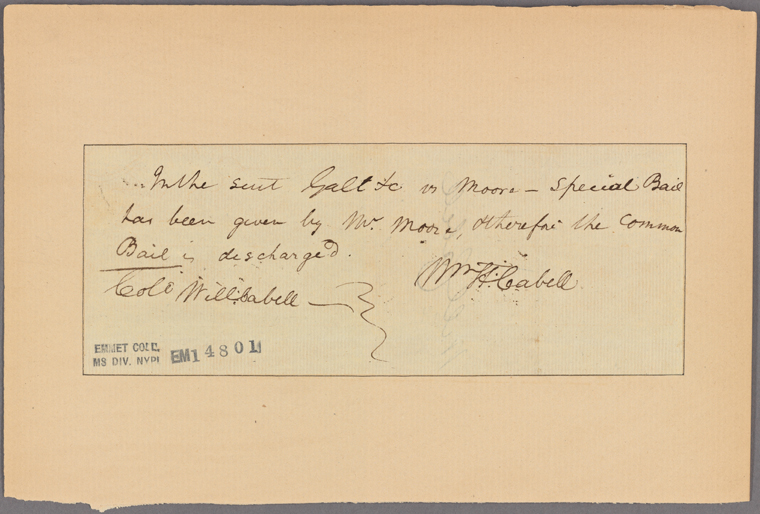 In the suit Galt &c vs Moore – Special Bail
has been given by Mr. Moore, & therefore the Common
Bail is discharged.
Wm H. Cabell
Colo Will: Cabell
EMMET COLL.
MS DIV. NYPL
EM14801